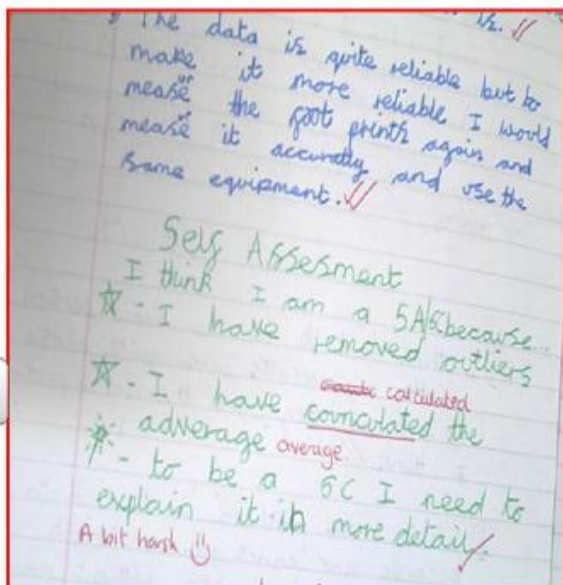 The data is quite reliable but to
make it more reliable I would
measure the foot prints again and
measure it accuratly and use the
same equipment.
Self Assesment
I think I am a 5A because...
- I have removed outliers
calculated
- I have counculated the
adverage average
- to be a 6C I need to
explain it in more detail.
A bit harsh